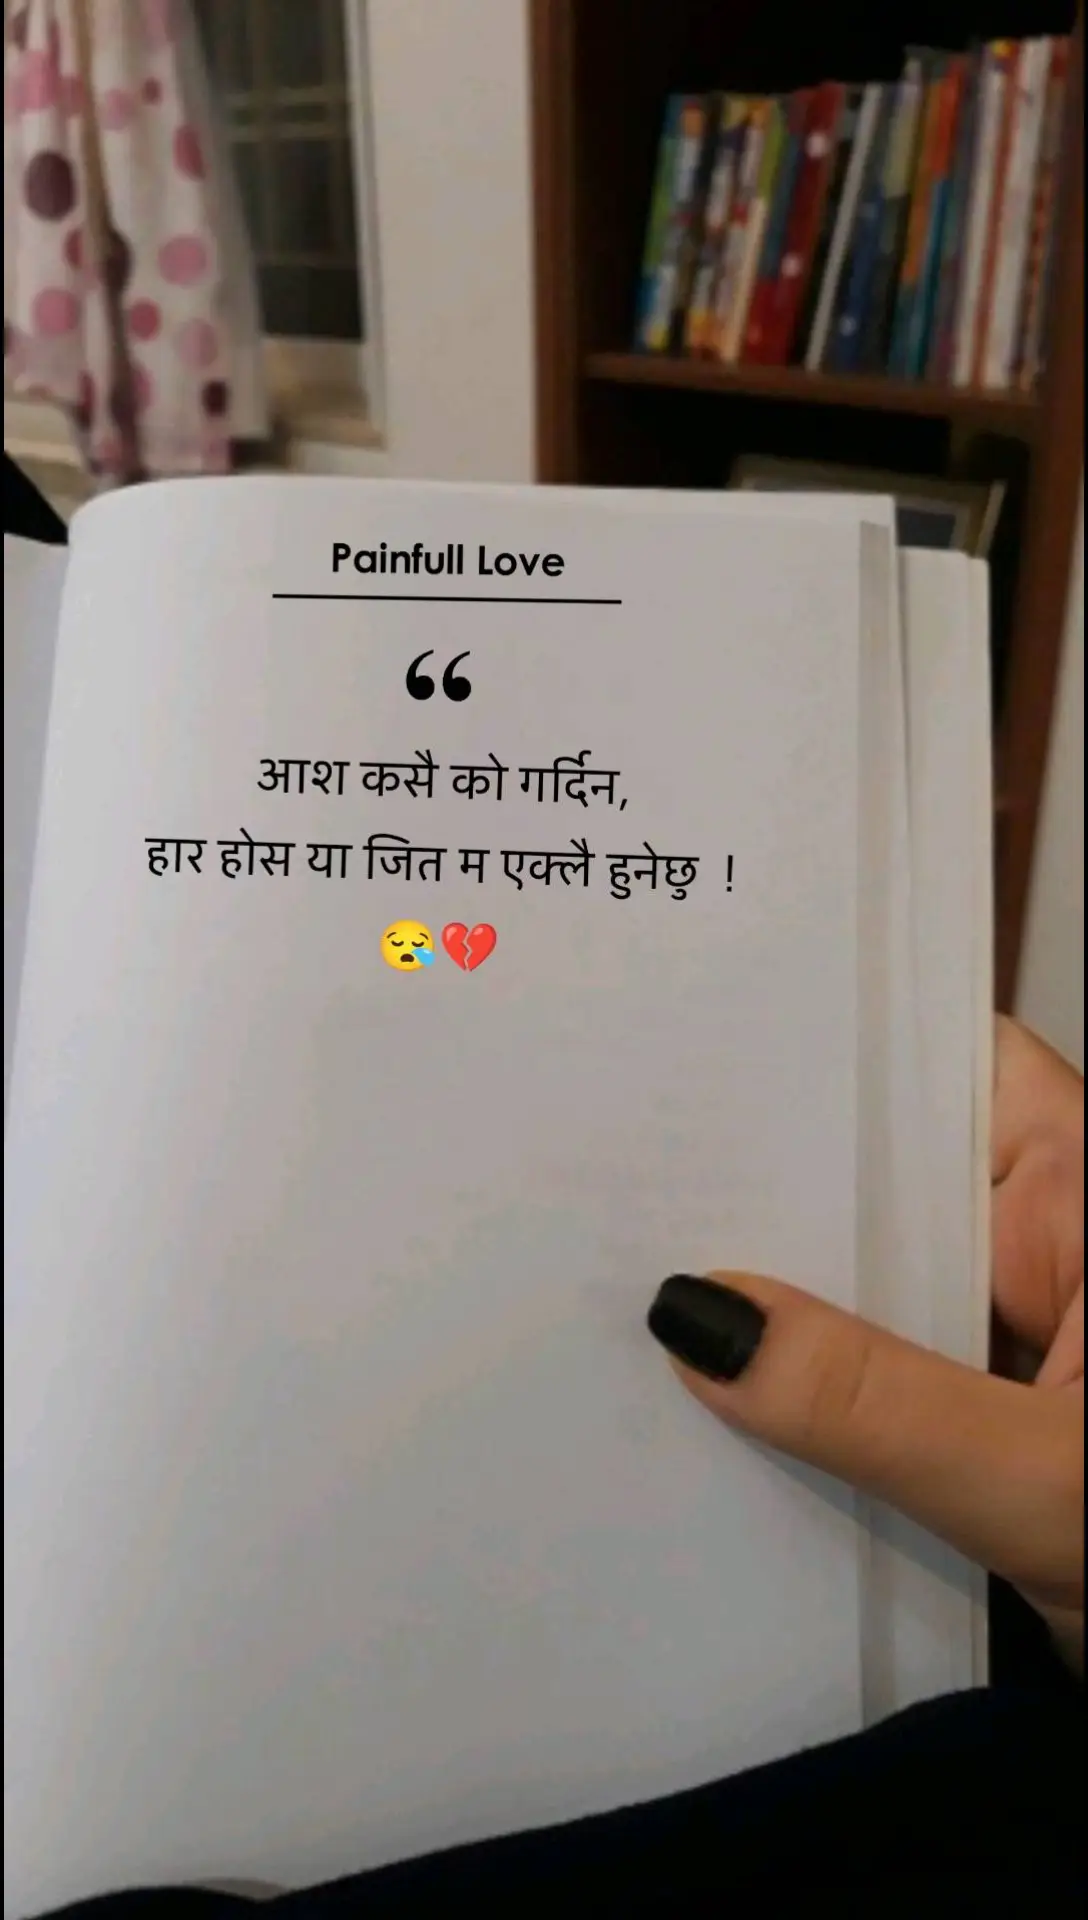 Painfull Love
❝
आश कसै को गर्दिन,
हार होस या जित म एक्लै हुनेछु !
😪💔